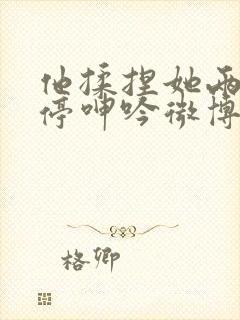 他揉捏她两
停呻吟微博
格卿